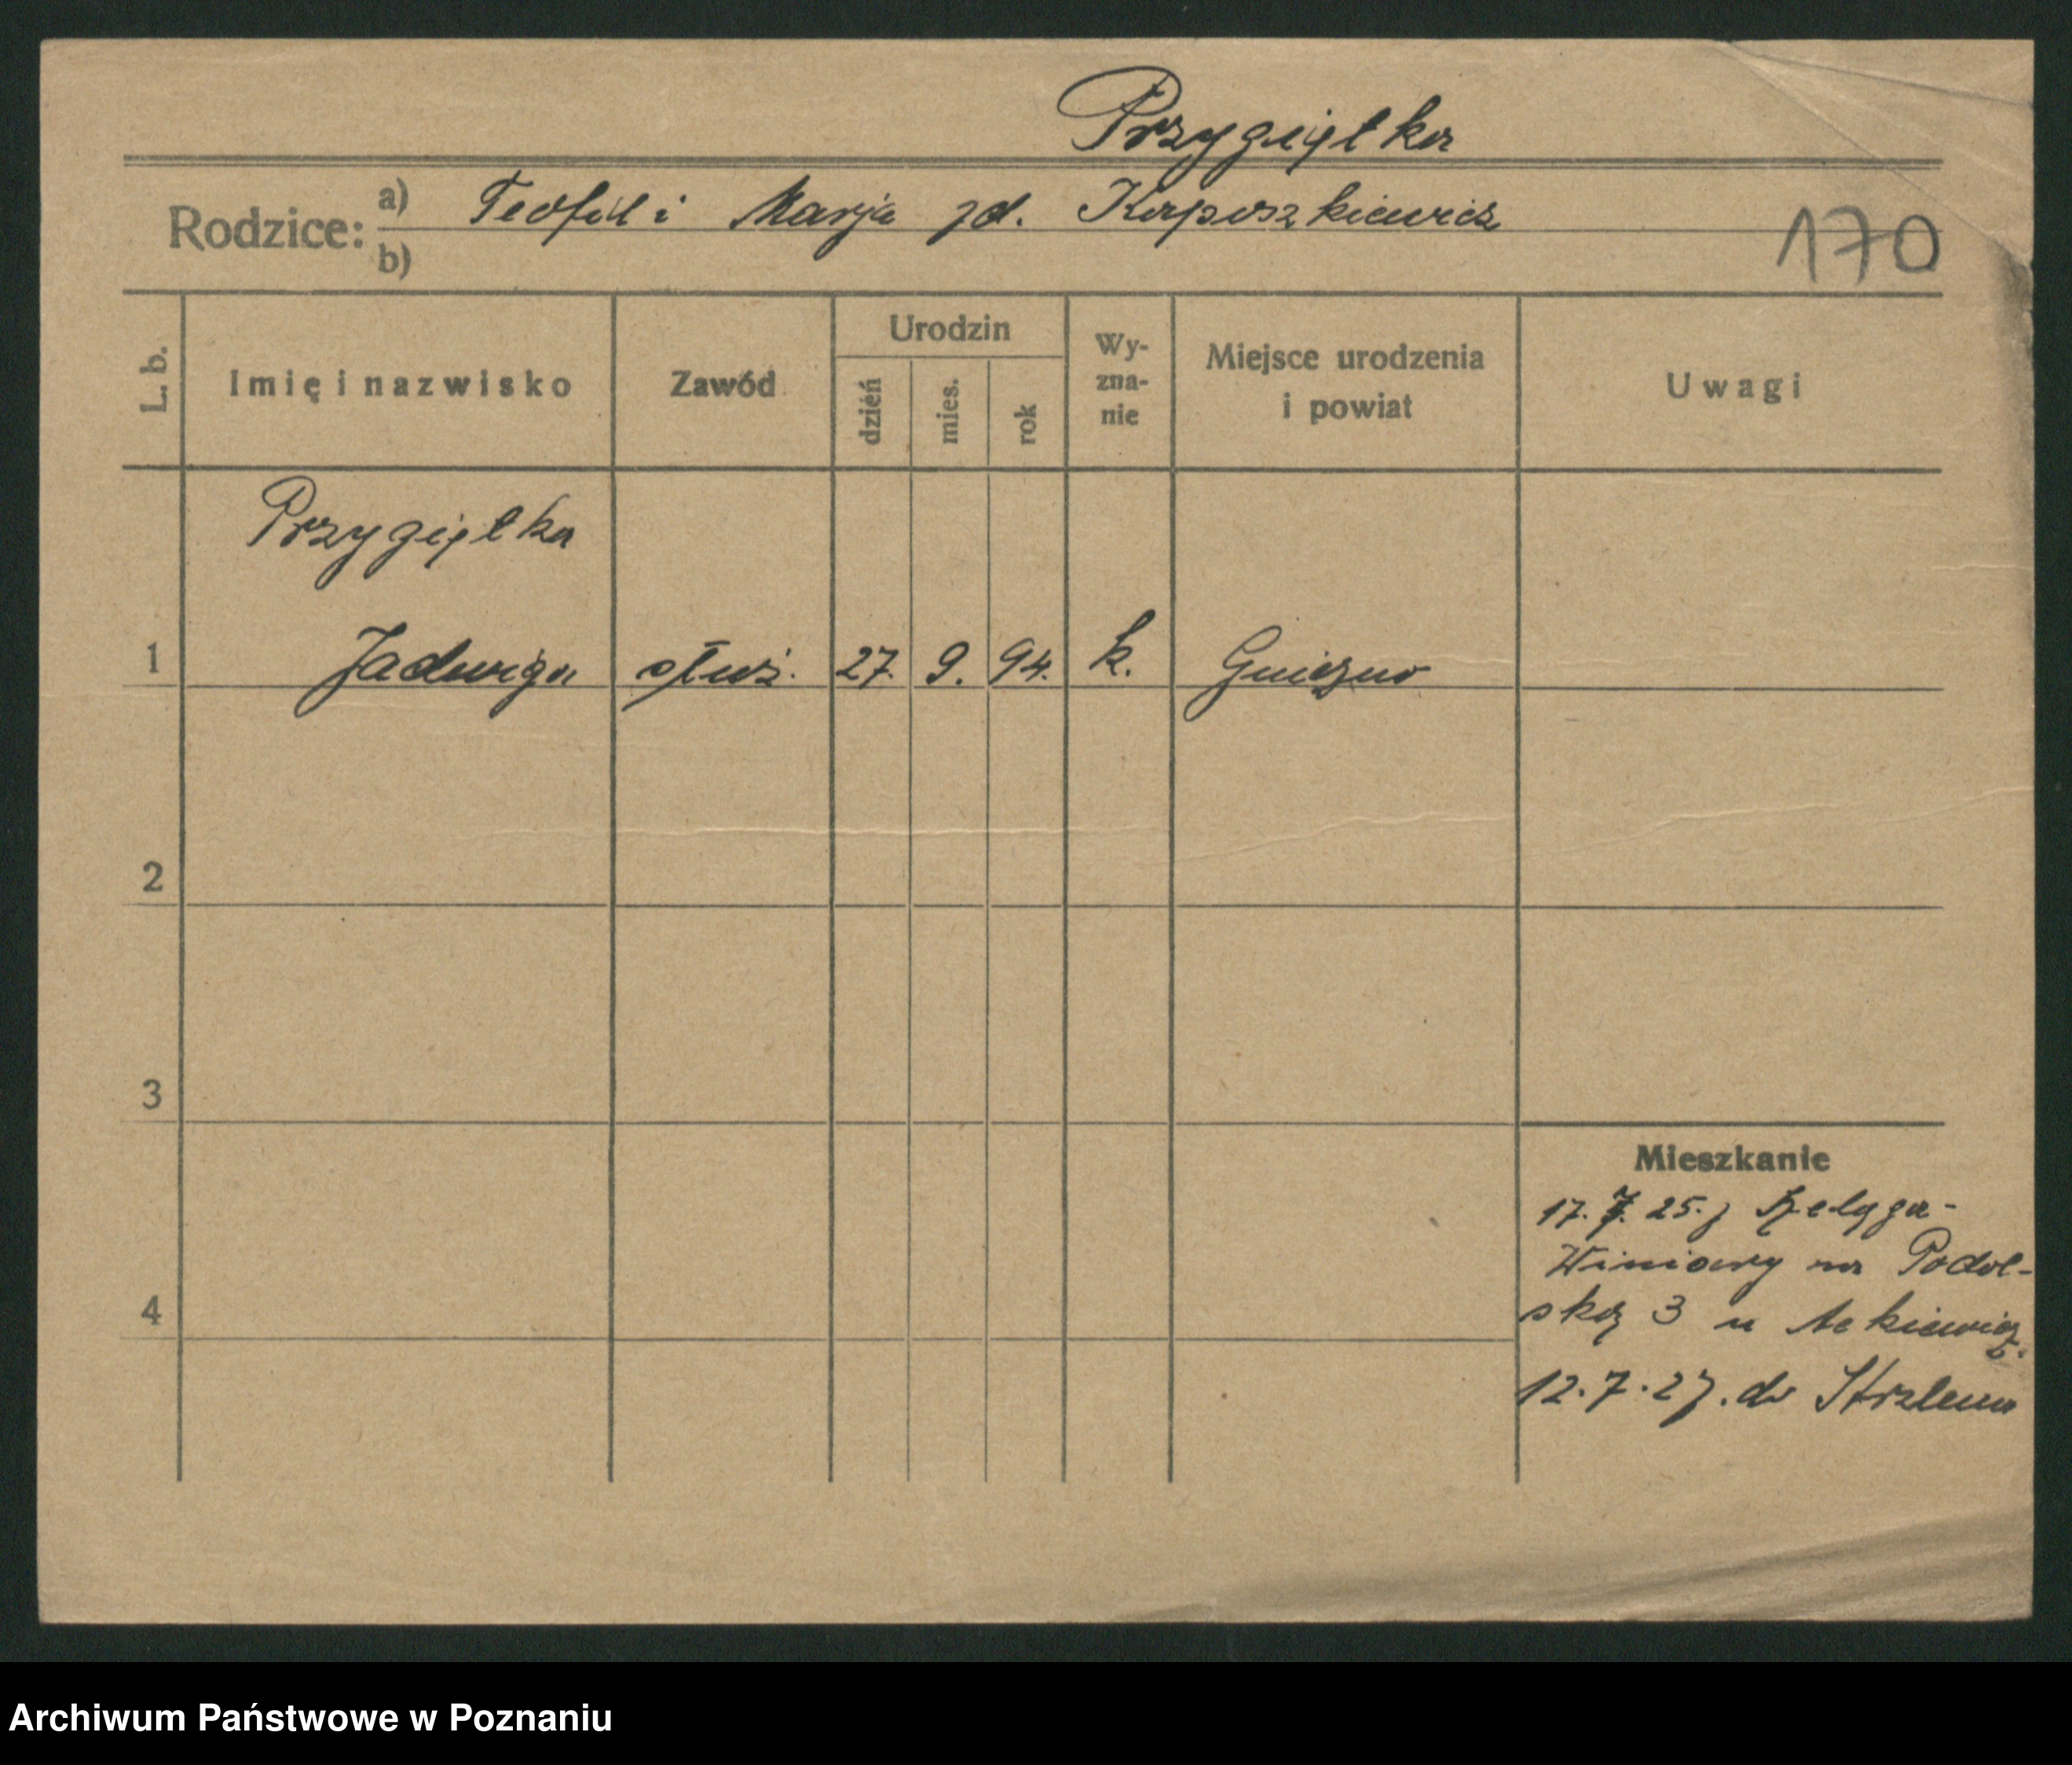 Przygiętka
Rodzice: a) Teofil i Marja zd. Karpuszkiewicz
b)
170
L. b.
Imię i nazwisko
Zawód
Urodzin
dzień
mies.
rok
Wy-
zna-
nie
Miejsce urodzenia
i powiat
Uwagi
Przygiętka
1 Jadwiga służ. 27. 9. 94. k. Gniezno
2
3
4
Mieszkanie
17. 7. 25. z
Winiary na Podol-
ską 3 u
12.7.27. do Strzelna
Archiwum Państwowe w Poznaniu